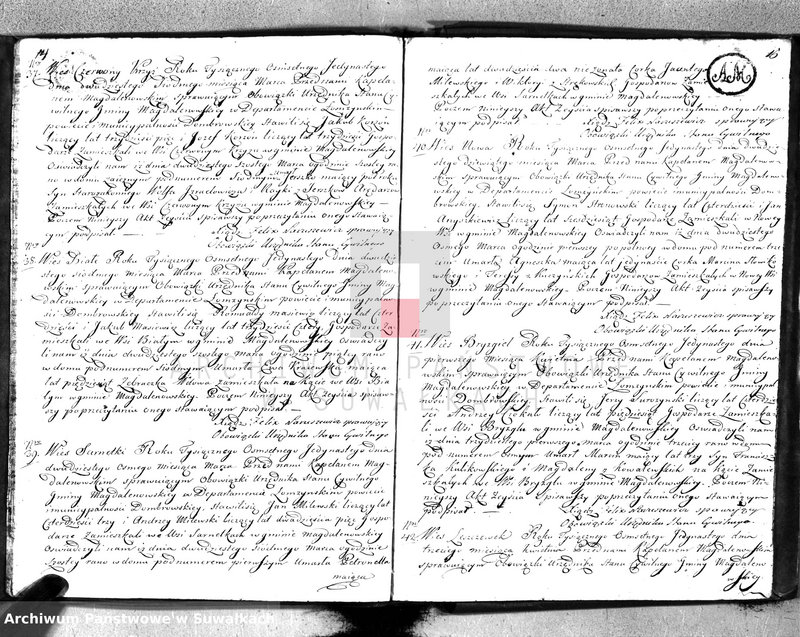 14
Nro
37.
Wieś Czerwony Krzyż Roku Tysiącznego Osmsetnego Jedynastego
dnia dwudziestego Siodmego miesiąca Marca Przed nami Kapela-
nem Magdalenowskim sprawuiącym Obowiązki Urzędnika Stanu Cy-
wilnego Gminy Magdalenowskiey w Departamencie Łomżynskim
powiecie i municypalności Dombrowskiey Stawili się Jakub
liczący lat trzydzieści pięć i Jozef liczący lat trzydzieści Gospo-
darze Zamieszkali we Wsi Czerwonym Krzyżu w gminie Magdalenowskiey
Oświadczyli nam iż dnia dwudziestego Szostego Marca o godzinie
rano w domu pod numerem Siodmym Jeszko maiący puł roku
Syn Starozakonnego Wolfa Izraelowicza i Rayki z Jerszkow Arędarza
Zamieszkałych we Wsi Czerwonym Krzyżu w gminie Magdalenowskiey
Poczem Ninieyszy Akt Zeyścia Spisawszy po przeczytaniu onego Stawaią-
cym podpisał
Xiądz Felix Naruszewicz sprawuiący
Obowiązki Urzędnika Stanu Cywilnego
Nro
38.
Wieś Białe Roku Tysiącznego Osmsetnego Jedynastego dnia dwudzie-
stego Siodmego miesiąca Marca Przed nami Kapelanem Magdaleno-
wskim sprawuiącym Obowiązki Urzędnika Stanu Cywilnego Gminy Mag-
dalenowskiey w Departamencie Łomżynskim powiecie i municypalno-
ści Dombrowskiey Stawili się liczący lat Czter-
dzieści i Jakub liczący lat trzydzieści Gospodarze Za-
mieszkali we Wsi Białym w gminie Magdalenowskiey Oświadczy-
li nam iż dnia dwudziestego Szostego marca o godzinie piątey rano
w domu pod numerem Siodmym Umarła Ewa maiąca
lat pięćdziesiąt Zebraczka Wdowa Zamieszkała na Kącie we Wsi Bia-
łym w gminie Magdalenowskiey. Poczem Ninieyszy Akt Zeyścia spisaw-
szy po przeczytaniu onego Stawaiącym podpisał
Xiądz Felix Naruszewicz sprawuiący
Obowiązki Urzędnika Stanu Cywilnego
Nro
39.
Wieś Sarnetki Roku Tysiącznego Osmsetnego Jedynastego dnia
dwudziestego Osmego miesiąca Marca Przed nami Kapelanem Mag-
dalenowskim sprawuiącym Obowiązki Urzędnika Stanu Cywilnego
Gminy Magdalenowskiey w Departamencie Łomżynskim powiecie
i municypalności Dombrowskiey. Stawili się Jan Milewski liczący lat
Czterdzieści trzy i Andrzey Milewski liczący lat dwadzieścia pięć Gospo-
darze Zamieszkali we Wsi Sarnetkach w gminie Magdalenowskiey
Oświadczyli nam iż dnia dwudziestego Siodmego Marca o godzinie
Szostey rano w domu pod numerem pierwszym Umarła Petronella
maiąca
15
AM
maiąca lat dwadzieścia dwa nie zonata Corka Jacentego
Milewskiego i Wiktoryi z Gospodarzow Zamie-
szkałych we Wsi Sarnetkach w gminie Magdalenowskiey
Poczem Ninieyszy Akt Zeyścia spisawszy po przeczytaniu onego Stawa-
iącym podpisał
Xiądz Felix Naruszewicz sprawuiący
Obowiązki Urzędnika Stanu Cywilnego
Nro
40.
Wieś Nowa Roku Tysiącznego Osmsetnego Jedynastego dnia Dwudzie-
stego Dziewiątego miesiąca Marca Przed nami Kapelanem Magdaleno-
wskim Sprawuiącym Obowiązki Urzędnika Stanu Cywilnego Gminy Magdaleno-
wskiey w Departamencie Łomżynskim powiecie municypalności Dom-
browskiey. Stawili się Symon liczący lat Czterdzieści i Jan
liczący lat Sześćdziesiąt Gospodarze Zamieszkali w Nowey
Wsi w gminie Magdalenowskiey Oświadczyli nam iż dnia dwudziestego
Osmego Marca o godzinie pierwszey po południu w domu pod numerem trze-
cim Umarła Agneszka maiąca lat Corka Marcina
i Gospodarzow Zamieszkałych w Nowey Wsi
w gminie Magdalenowskiey. Poczem Ninieyszy Akt Zeyścia spisawszy
po przeczytaniu onego Stawaiącym podpisał
Xiądz Felix Naruszewicz sprawuiący
Obowiązki Urzędnika Stanu Cywilnego
Nro
41.
Wieś Bryzgiel Roku Tysiącznego Osmsetnego Jedynastego dnia
pierwszego Miesiąca Kwietnia Przed nami Kapelanem Magdaleno-
wskim Sprawuiącym Obowiązki Urzędnika Stanu Cywilnego Gminy
Magdalenowskiey w Departamencie Łomżynskim powiecie municypal-
ności Dombrowskiey Stawili się Jerzy liczący lat Czterdzie-
ści Andrzey liczący lat pięćdziesiąt Gospodarze Zamieszka-
li we Wsi Bryzglu w gminie Magdalenowskiey Oświadczyli nam
iż dnia trzydziestego pierwszego marca o godzinie trzeciey rano w domu
pod numerem Osmym Umarł Marcin maiący lat trzy Syn Francisz-
ka i Magdaleny z Kowalewskich na Kącie Zamie-
szkałych we Wsi Bryzglu w gminie Magdalenowskiey. Poczem Ni-
nieyszy Akt Zeyścia spisawszy po przeczytaniu onego Stawaiącym
podpisał
Xiądz Felix Naruszewicz sprawuiący
Obowiązki Urzędnika Stanu Cywilnego
Nro
42.
Wieś Roku Tysiącznego Osmsetnego Jedynastego dnia
trzeciego miesiąca Kwietnia Przed nami Kapelanem Magdalenowskim
sprawuiącym Obowiązki Urzędnika Stanu Cywilnego Gminy Magdalenow-
skiey
ARCHIWUM PAŃSTWOWE
W SUWAŁKACH
Archiwum Państwowe w Suwałkach